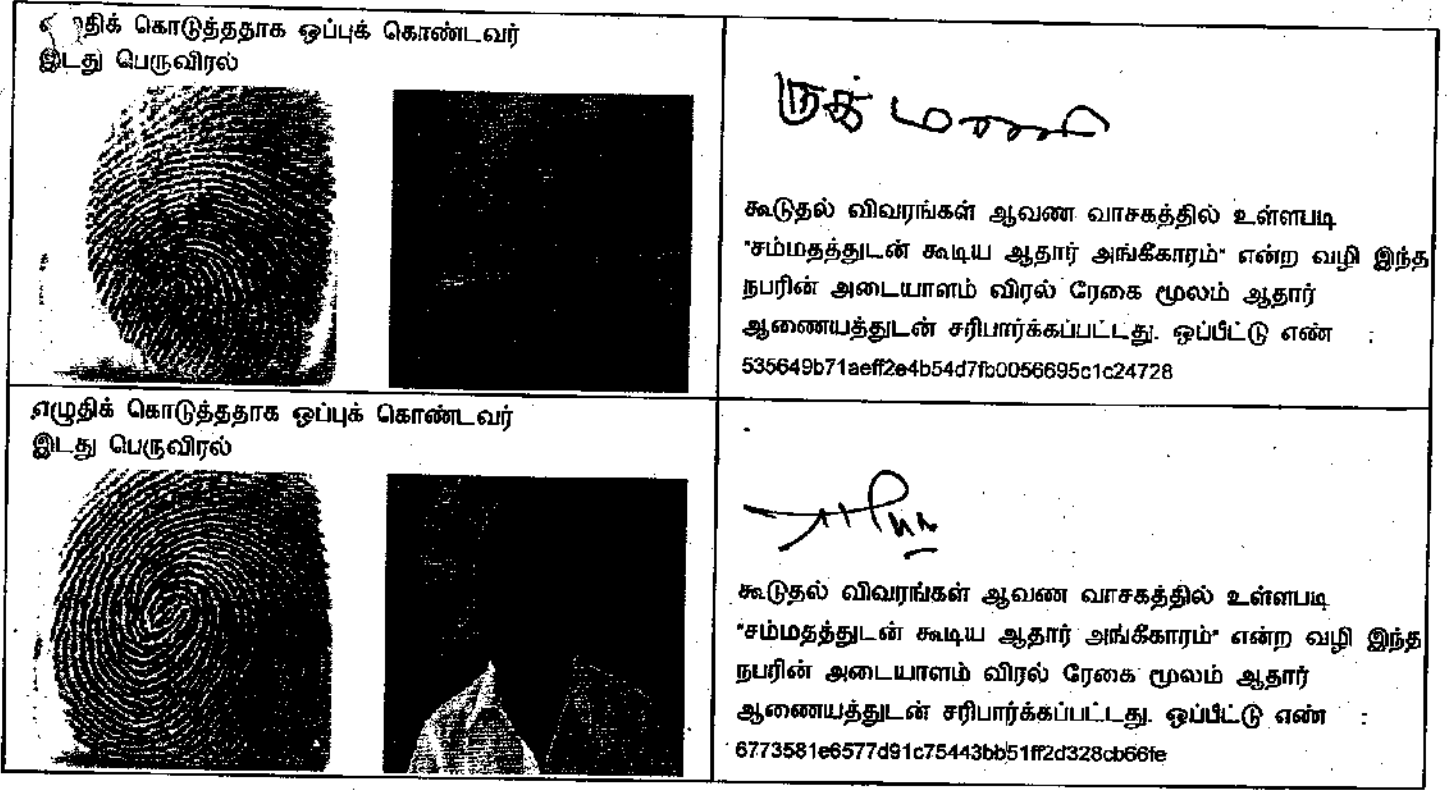 எழுதிக் கொடுத்ததாக ஒப்புக் கொண்டவர்
இடது பெருவிரல்
ருக்மணி
கூடுதல் விவரங்கள் ஆவண வாசகத்தில் உள்ளபடி
"சம்மதத்துடன் கூடிய ஆதார் அங்கீகாரம்" என்ற வழி இந்த
நபரின் அடையாளம் விரல் ரேகை மூலம் ஆதார்
ஆணையத்துடன் சரிபார்க்கப்பட்டது. ஒப்பீட்டு எண் :
535649b71aeff2e4b54d7fb0056695c1c24728
எழுதிக் கொடுத்ததாக ஒப்புக் கொண்டவர்
இடது பெருவிரல்
கூடுதல் விவரங்கள் ஆவண வாசகத்தில் உள்ளபடி
"சம்மதத்துடன் கூடிய ஆதார் அங்கீகாரம்" என்ற வழி இந்த
நபரின் அடையாளம் விரல் ரேகை மூலம் ஆதார்
ஆணையத்துடன் சரிபார்க்கப்பட்டது. ஒப்பீட்டு எண் :
6773581e6577d91c75443bb51ff2d328cb66fe